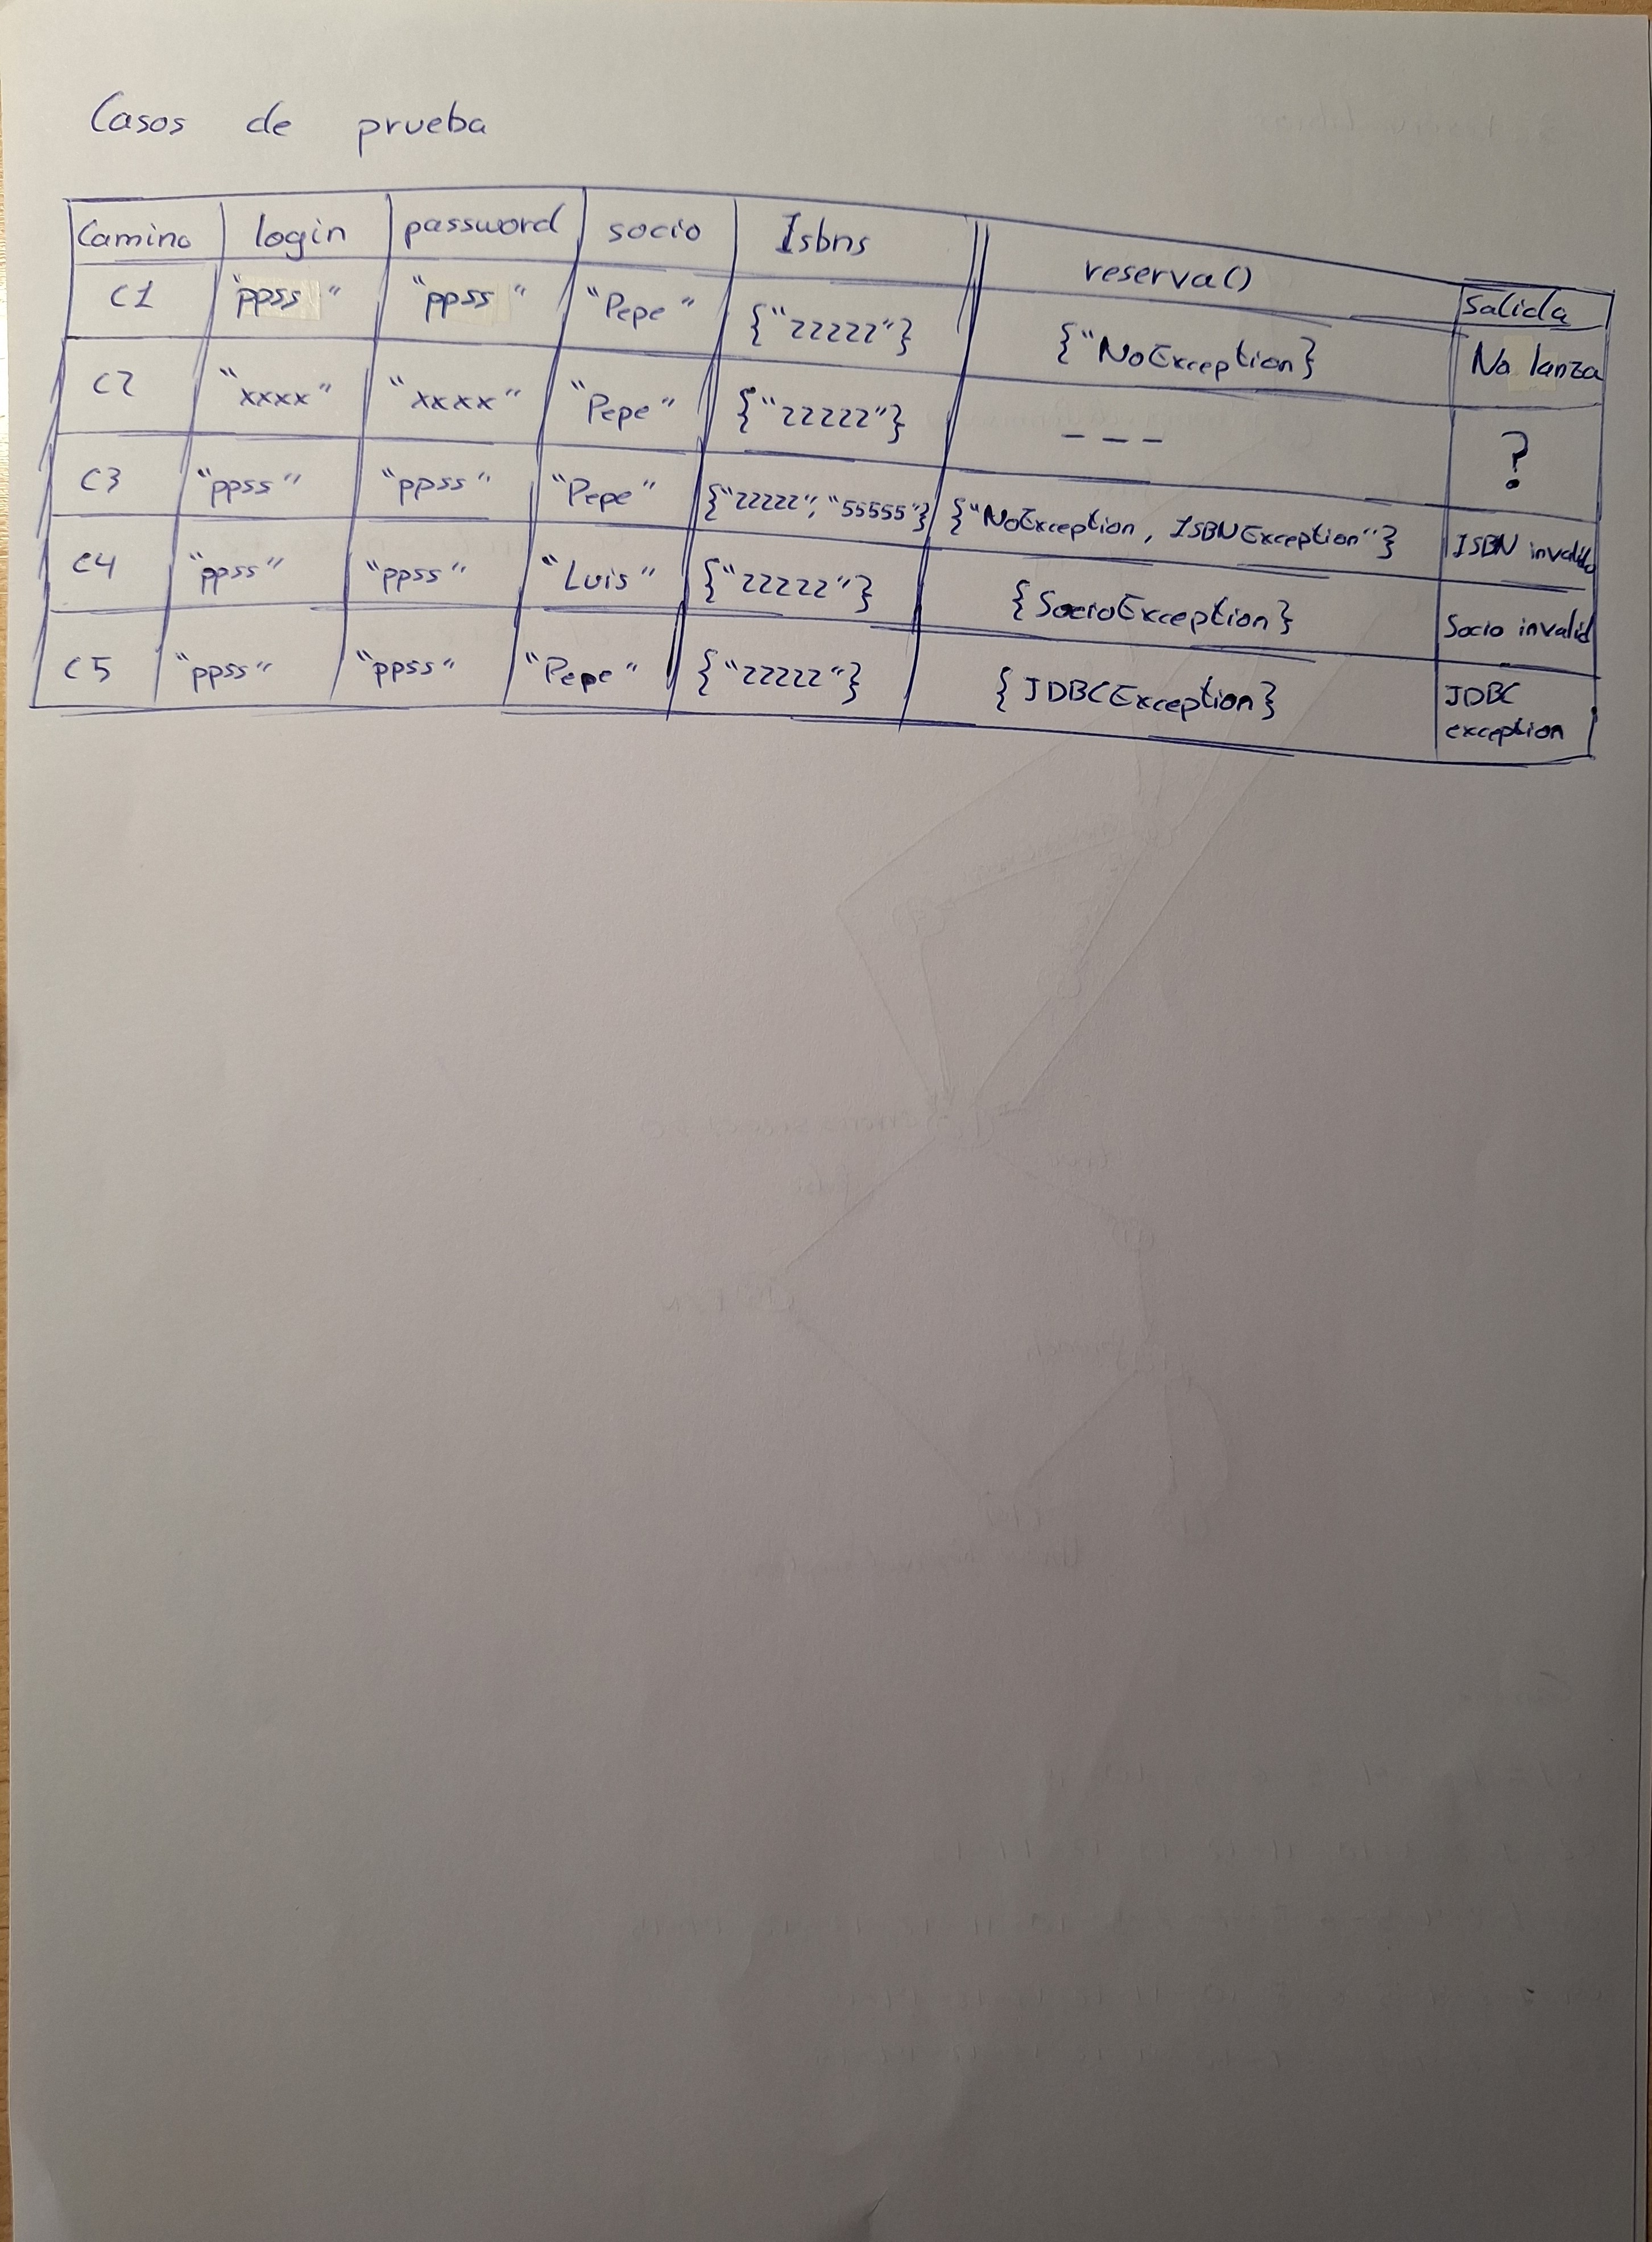 Casos de prueba
Camino login password socio Isbns reserva() Salida
C1 "ppss" "ppss" "Pepe" {"22222"} {"NoException} No lanza
C2 "xxxx" "xxxx" "Pepe" {"22222"} --- ?
C3 "ppss" "ppss" "Pepe" {"22222", "55555"} {"NoException, ISBNException"} ISBN invalido
C4 "ppss" "ppss" "Luis" {"22222"} {SocioException} Socio invalid
C5 "ppss" "ppss" "Pepe" {"22222"} {JDBCException} JDBC
exception